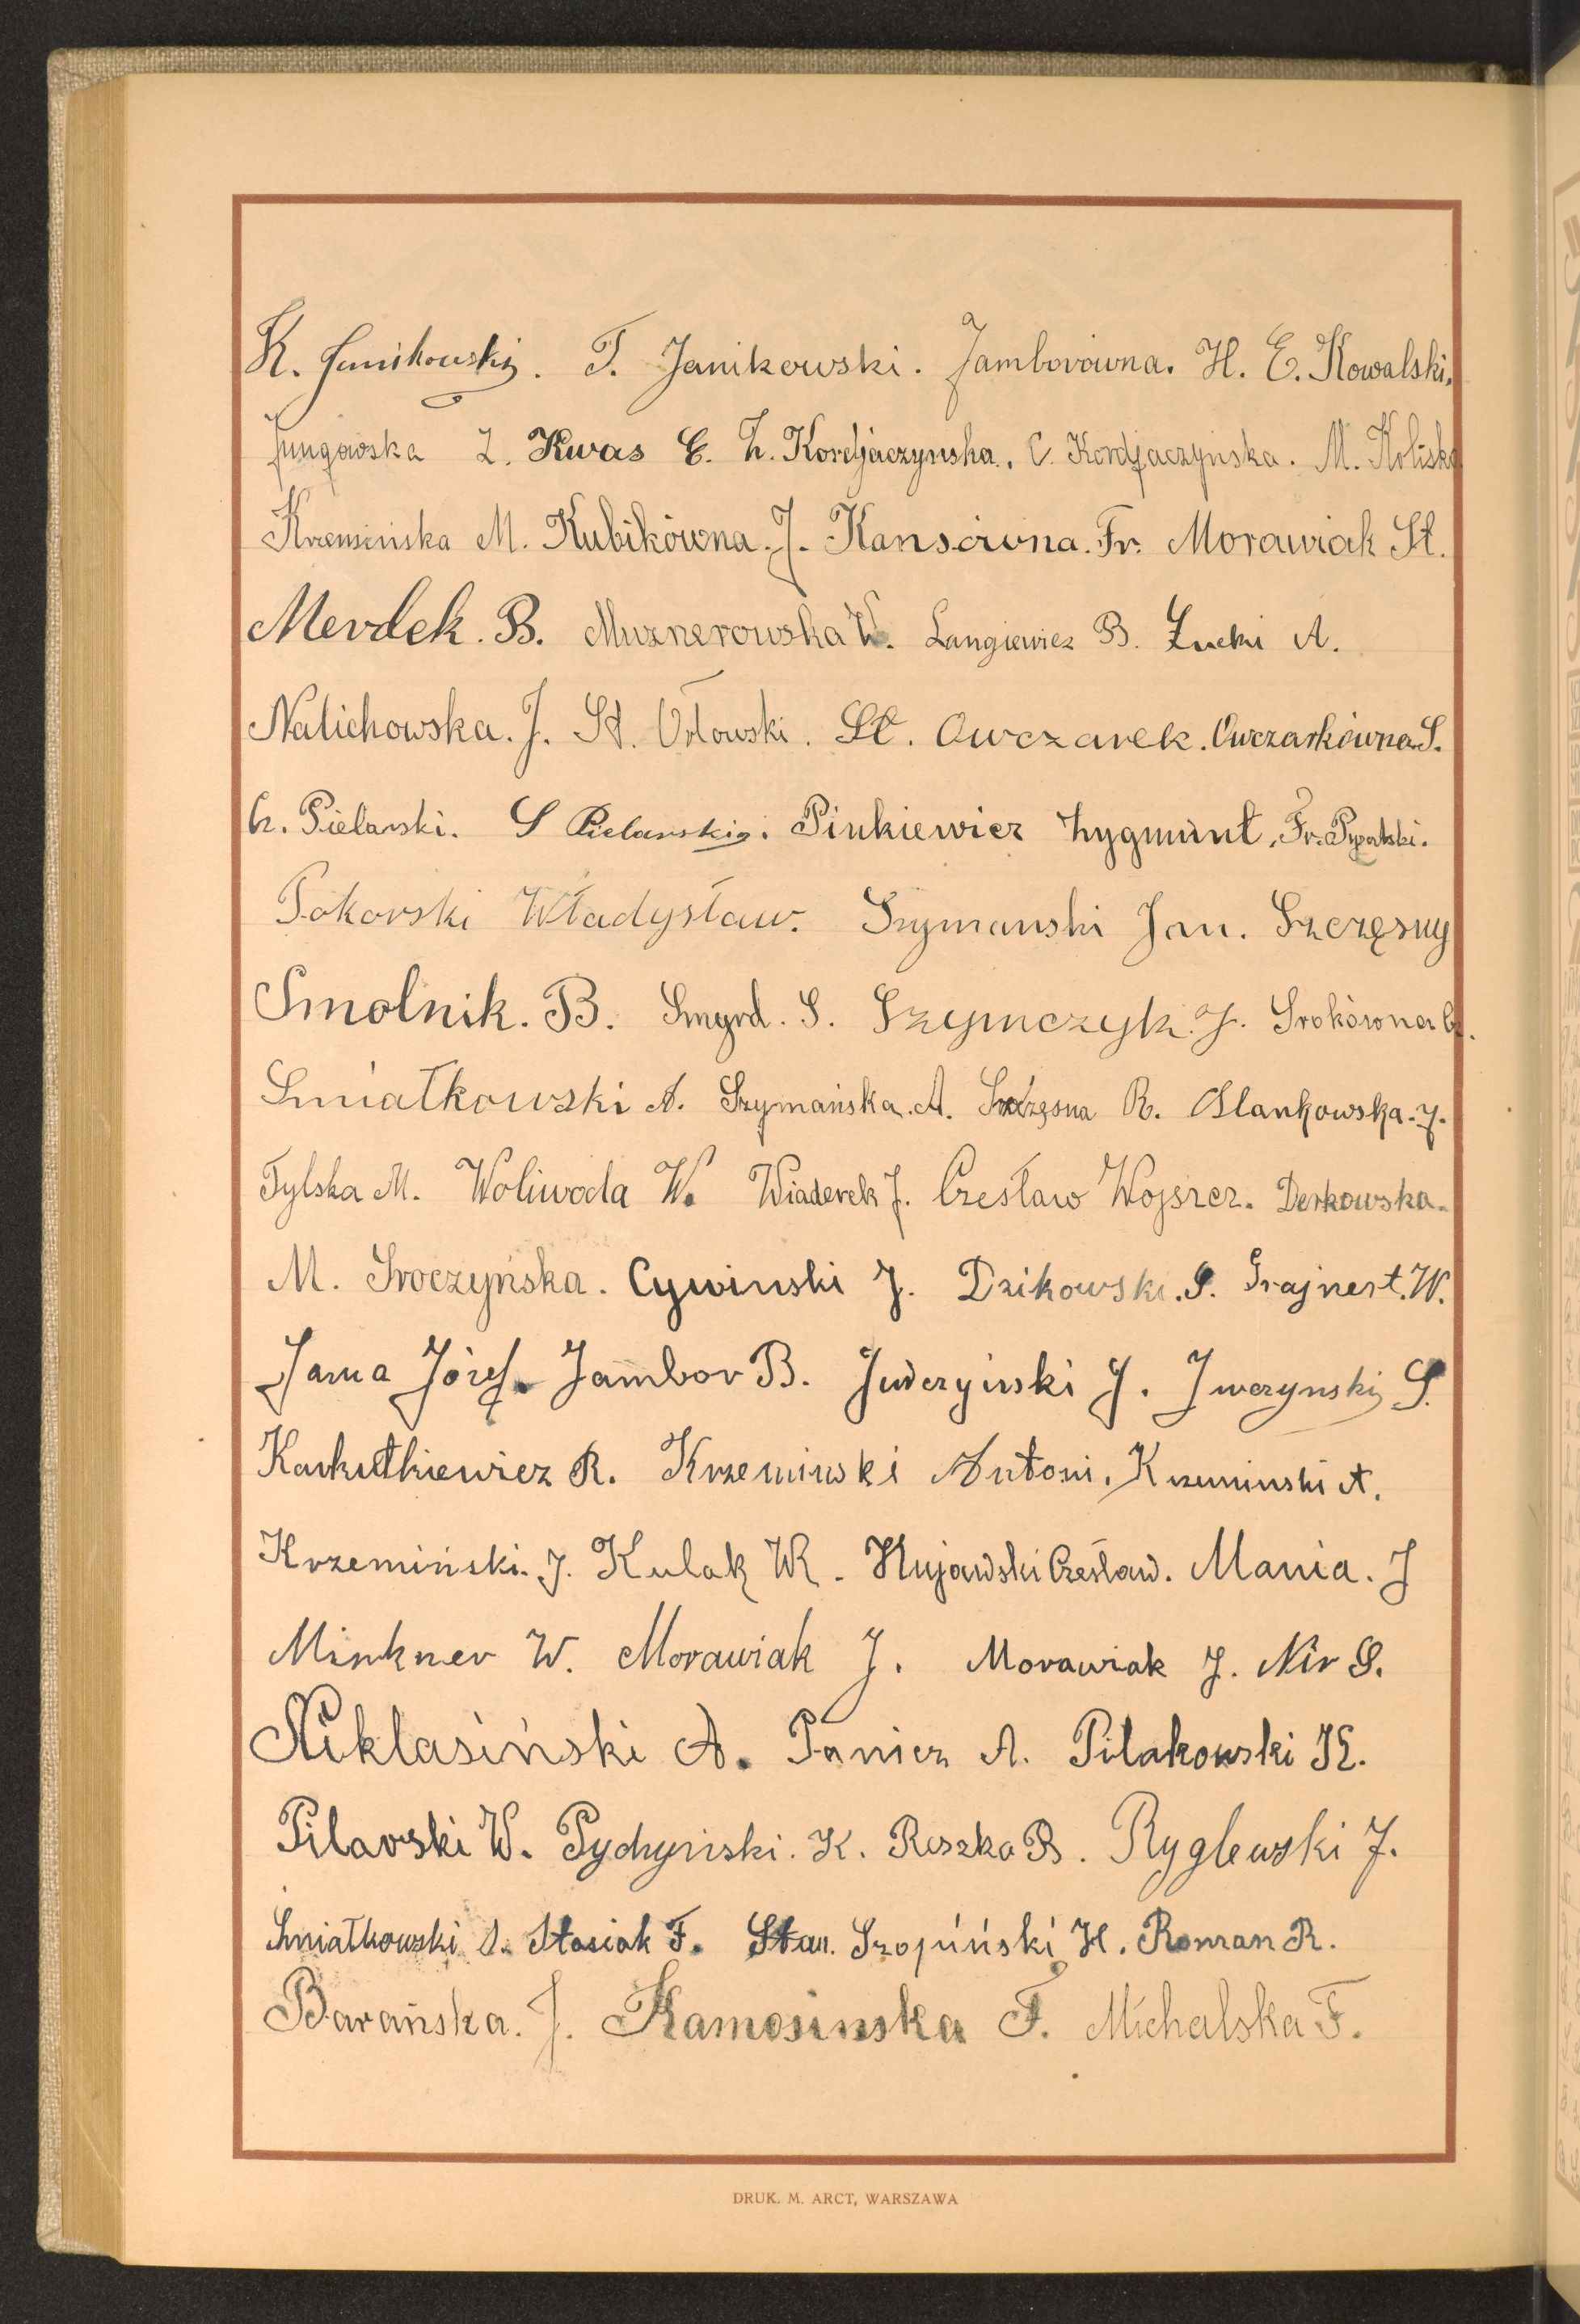 K. Janikowski. T. Janikowski. Jamborówna. H. E. Kowalski.
Jungowska Z. Kwas E. Z. Kordjaczynska. C. Kordjaczyńska. M. Koliska
Krzemińska M. Kubikówna. J. Kansówna. Fr. Morawiak St.
Merdek. B. Muznerowska W. Langiewicz B. Łucki A.
Nalichowska. J. St. Orłowski. St. Owczarek. Owczarkówna S.
Cz. Pielarski. S Pielarski. Pinkiewicz Zygmunt, Fr.
Pokorski Władysław. Szymanski Jan. Szczęsny
Smolnik. B. Smyrd. S. Szymczyk. J. Srokówna Cz.
Smiałkowski A. Szymańska. A. Szczęsna R. Slankowska. J.
Tylska M. Woliwoda W. Wiaderek J. Czesław Wojszcz. Derkowska.
M. Sroczyńska. Cywinski J. Dzikowski. S. Grajnert. W.
Jama Józef. Jambor B. Juderzyiński J. Jwczynski S.
Karkutkiewicz R. Krzeminski Antoni. Krzeminski A.
Krzemiński. J. Kulak W. Kujawski Czesław. Mania. J
Minkner W. Morawiak J. Morawiak J. Nir S.
Niklasiński A. Panicz A. Pilakowski K.
Pilarski W. Pydzyński. K. Reszka B. Ryglewski J.
Smiałkowski S. Stasiak F. Stan. Szopiński H. Roman R.
Barańska. J. Kamosinska F. Michalska F.
DRUK. M. ARCT, WARSZAWA